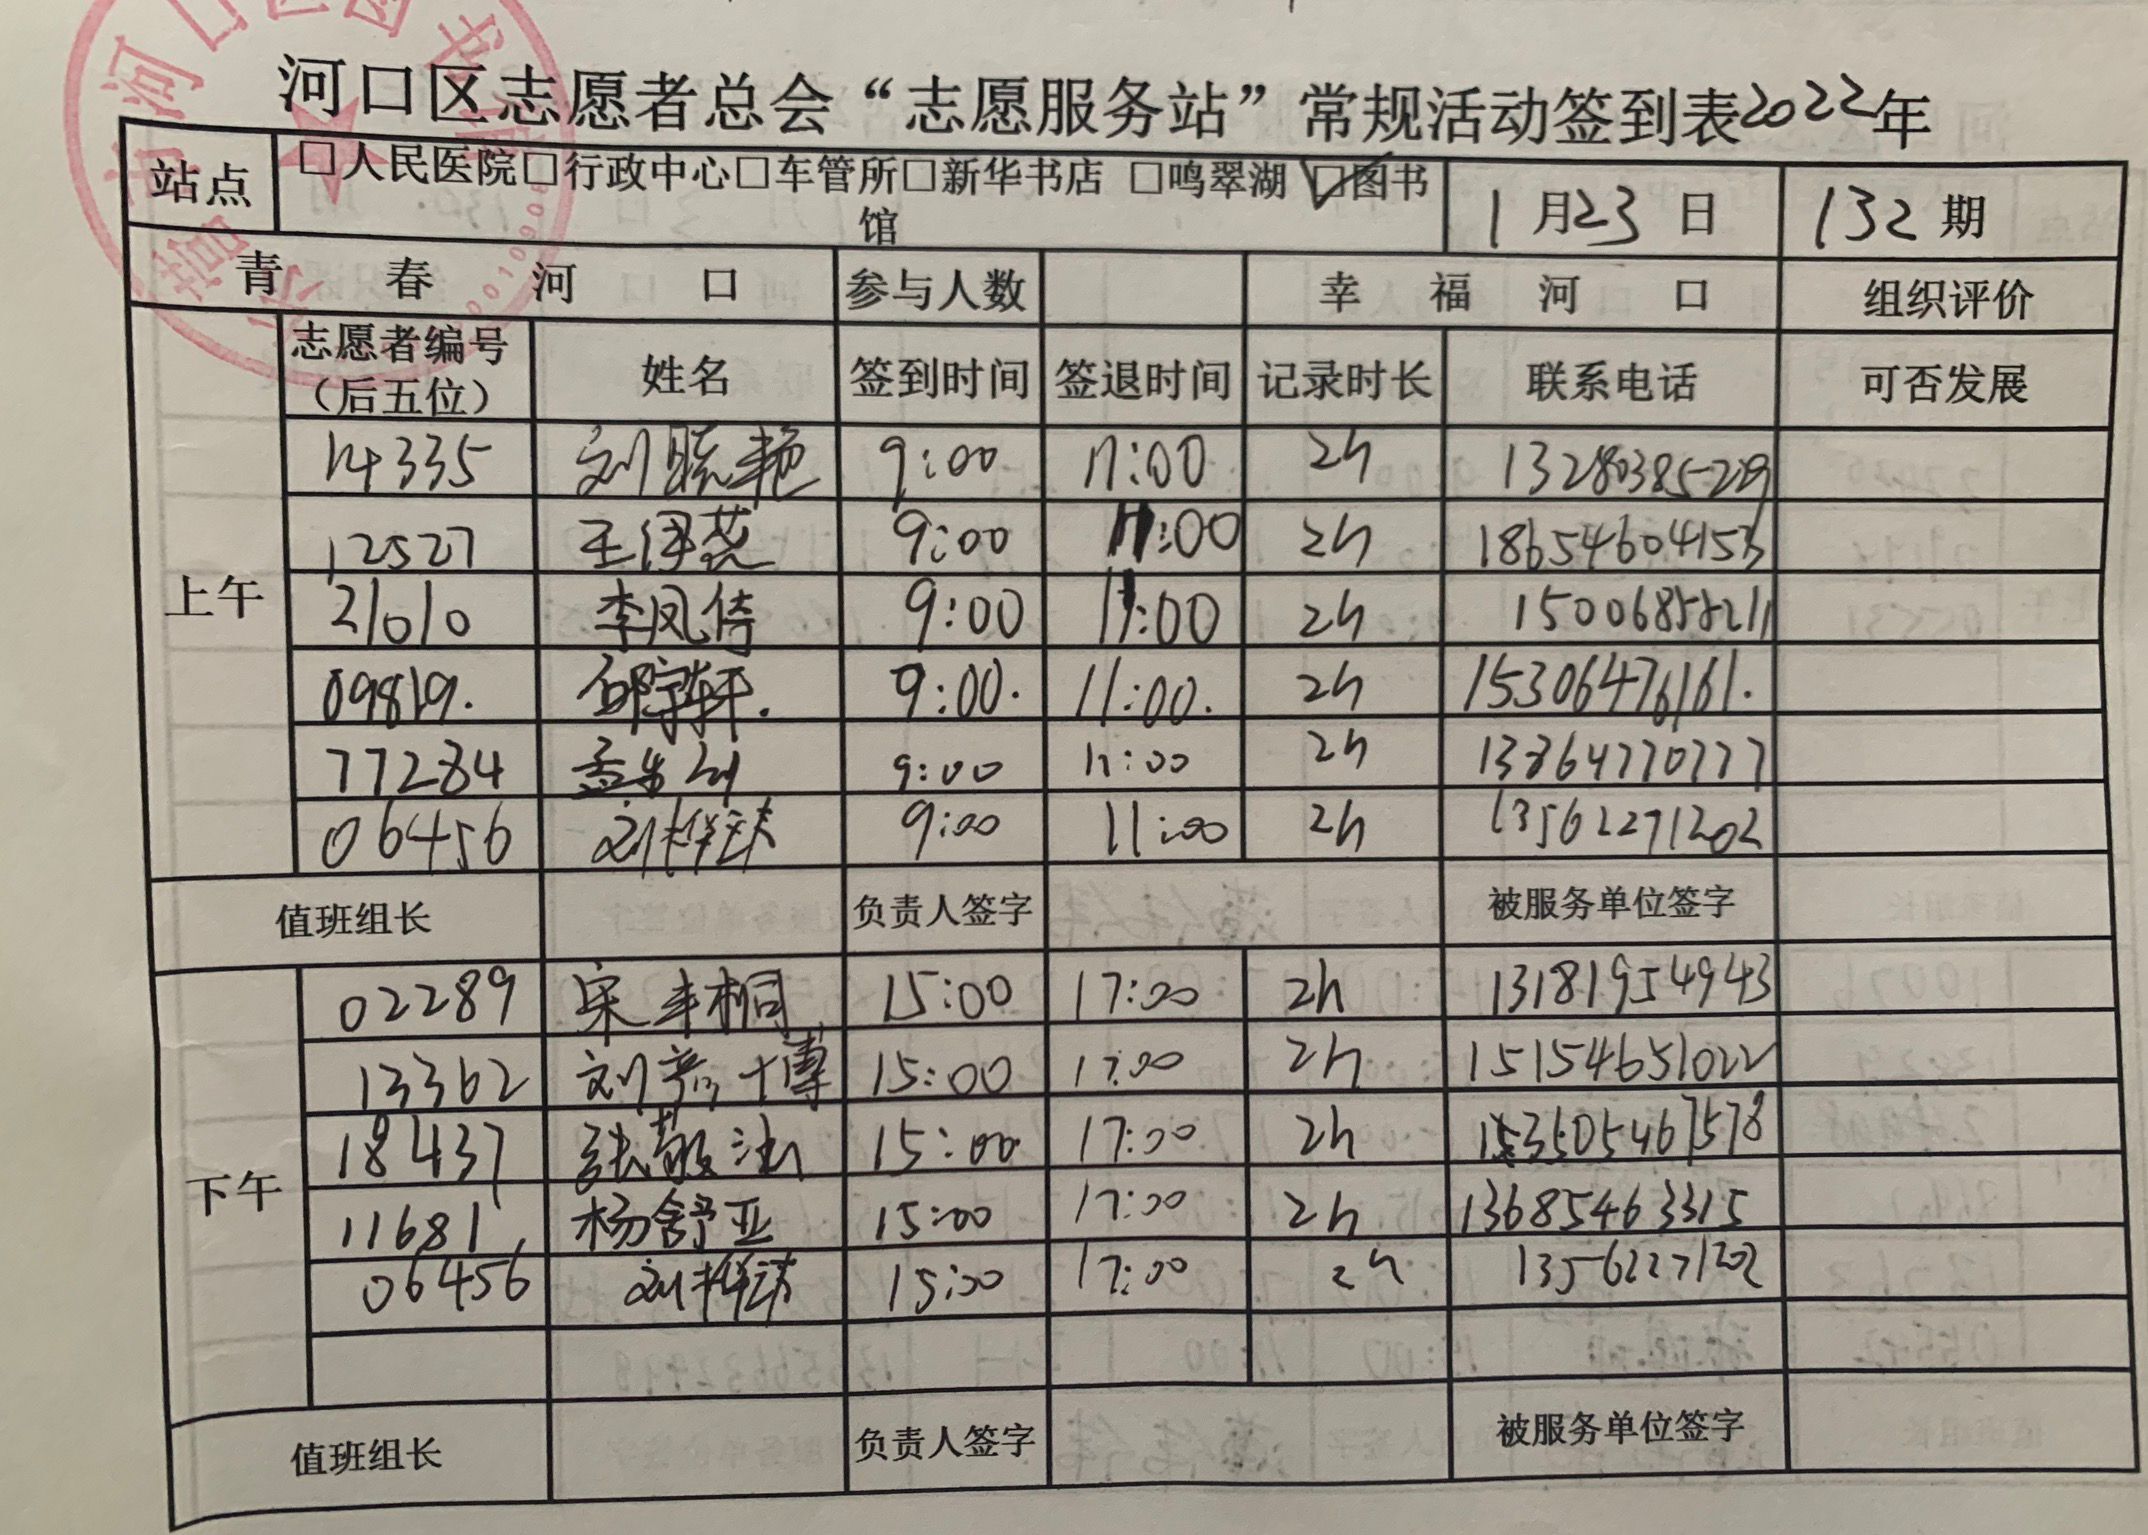 河口区志愿者总会“志愿服务站”常规活动签到表2022年
站点 □人民医院□行政中心□车管所□新华书店 □鸣翠湖 ☑图书馆 1月23日 132期
青春河口 参与人数 幸福河口 组织评价
志愿者编号（后五位） 姓名 签到时间 签退时间 记录时长 联系电话 可否发展
上午
14335 刘晓艳 9:00 11:00 2h
12527 王伊尧 9:00 11:00 2h 18654604153
21010 李凤倚 9:00 11:00 2h 15006858211
09819. 邱宇轩. 9:00. 11:00. 2h 15306476161.
77284 孟 9:00 11:00 2h 13864770777
06456 刘 9:00 11:00 2h 13562271202
值班组长 负责人签字 被服务单位签字
下午
02289 宋丰桐 15:00 17:00 2h 13181954943
13362 刘彦博 15:00 17:00 2h 15154651022
18437 张敬 15:00 17:00 2h
11681 杨舒亚 15:00 17:00 2h 13685463315
06456 刘 15:00 17:00 2h 13562271202
值班组长 负责人签字 被服务单位签字